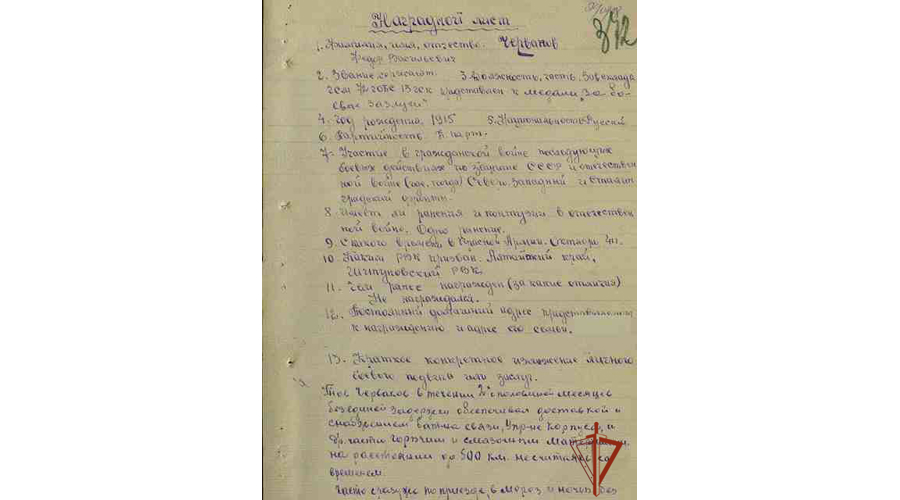 Наградной лист
372
1. Фамилия, имя, отчество. Черванов
Федор Васильевич
2. Звание сержант 3. Должность, часть. Зав. склада
ГСМ 13 ГСК представлен к медали „За бо-
евые заслуги“
4. Год рождения, 1915 5. Национальность Русский
6. Партийность б. парт.
7. Участие в гражданской войне последующих
боевых действиях по защите СССР и отечествен
ной войне (где, когда) Северо. Западный и Сталин
градский фронты.
8. Имеет ли ранения и контузии в отечествен
ной войне. Одно ранение.
9. С какого времени в Красной Армии. Октября 41г.
10. Каким РВК призван. Алтайский край,
Шипуновский РВК.
11. Чем ранее награжден (за какие отличия)
Не награждался.
12. Постоянный домашний адрес представляемого
к награждению и адрес его семьи.
13. Краткое конкретное изложение личного
боевого подвига или заслуг.
Тов Черванов в течении 2х с половиной месяцев
без единой задержки обеспечивал доставкой и
снабжением бат-на связи, Упр-ие Корпуса, и
др. части горючим и смазочным
на расстоянии до 500 км. не считаясь со
временем.
Часто сразу же по приезде, в мороз и ночью без